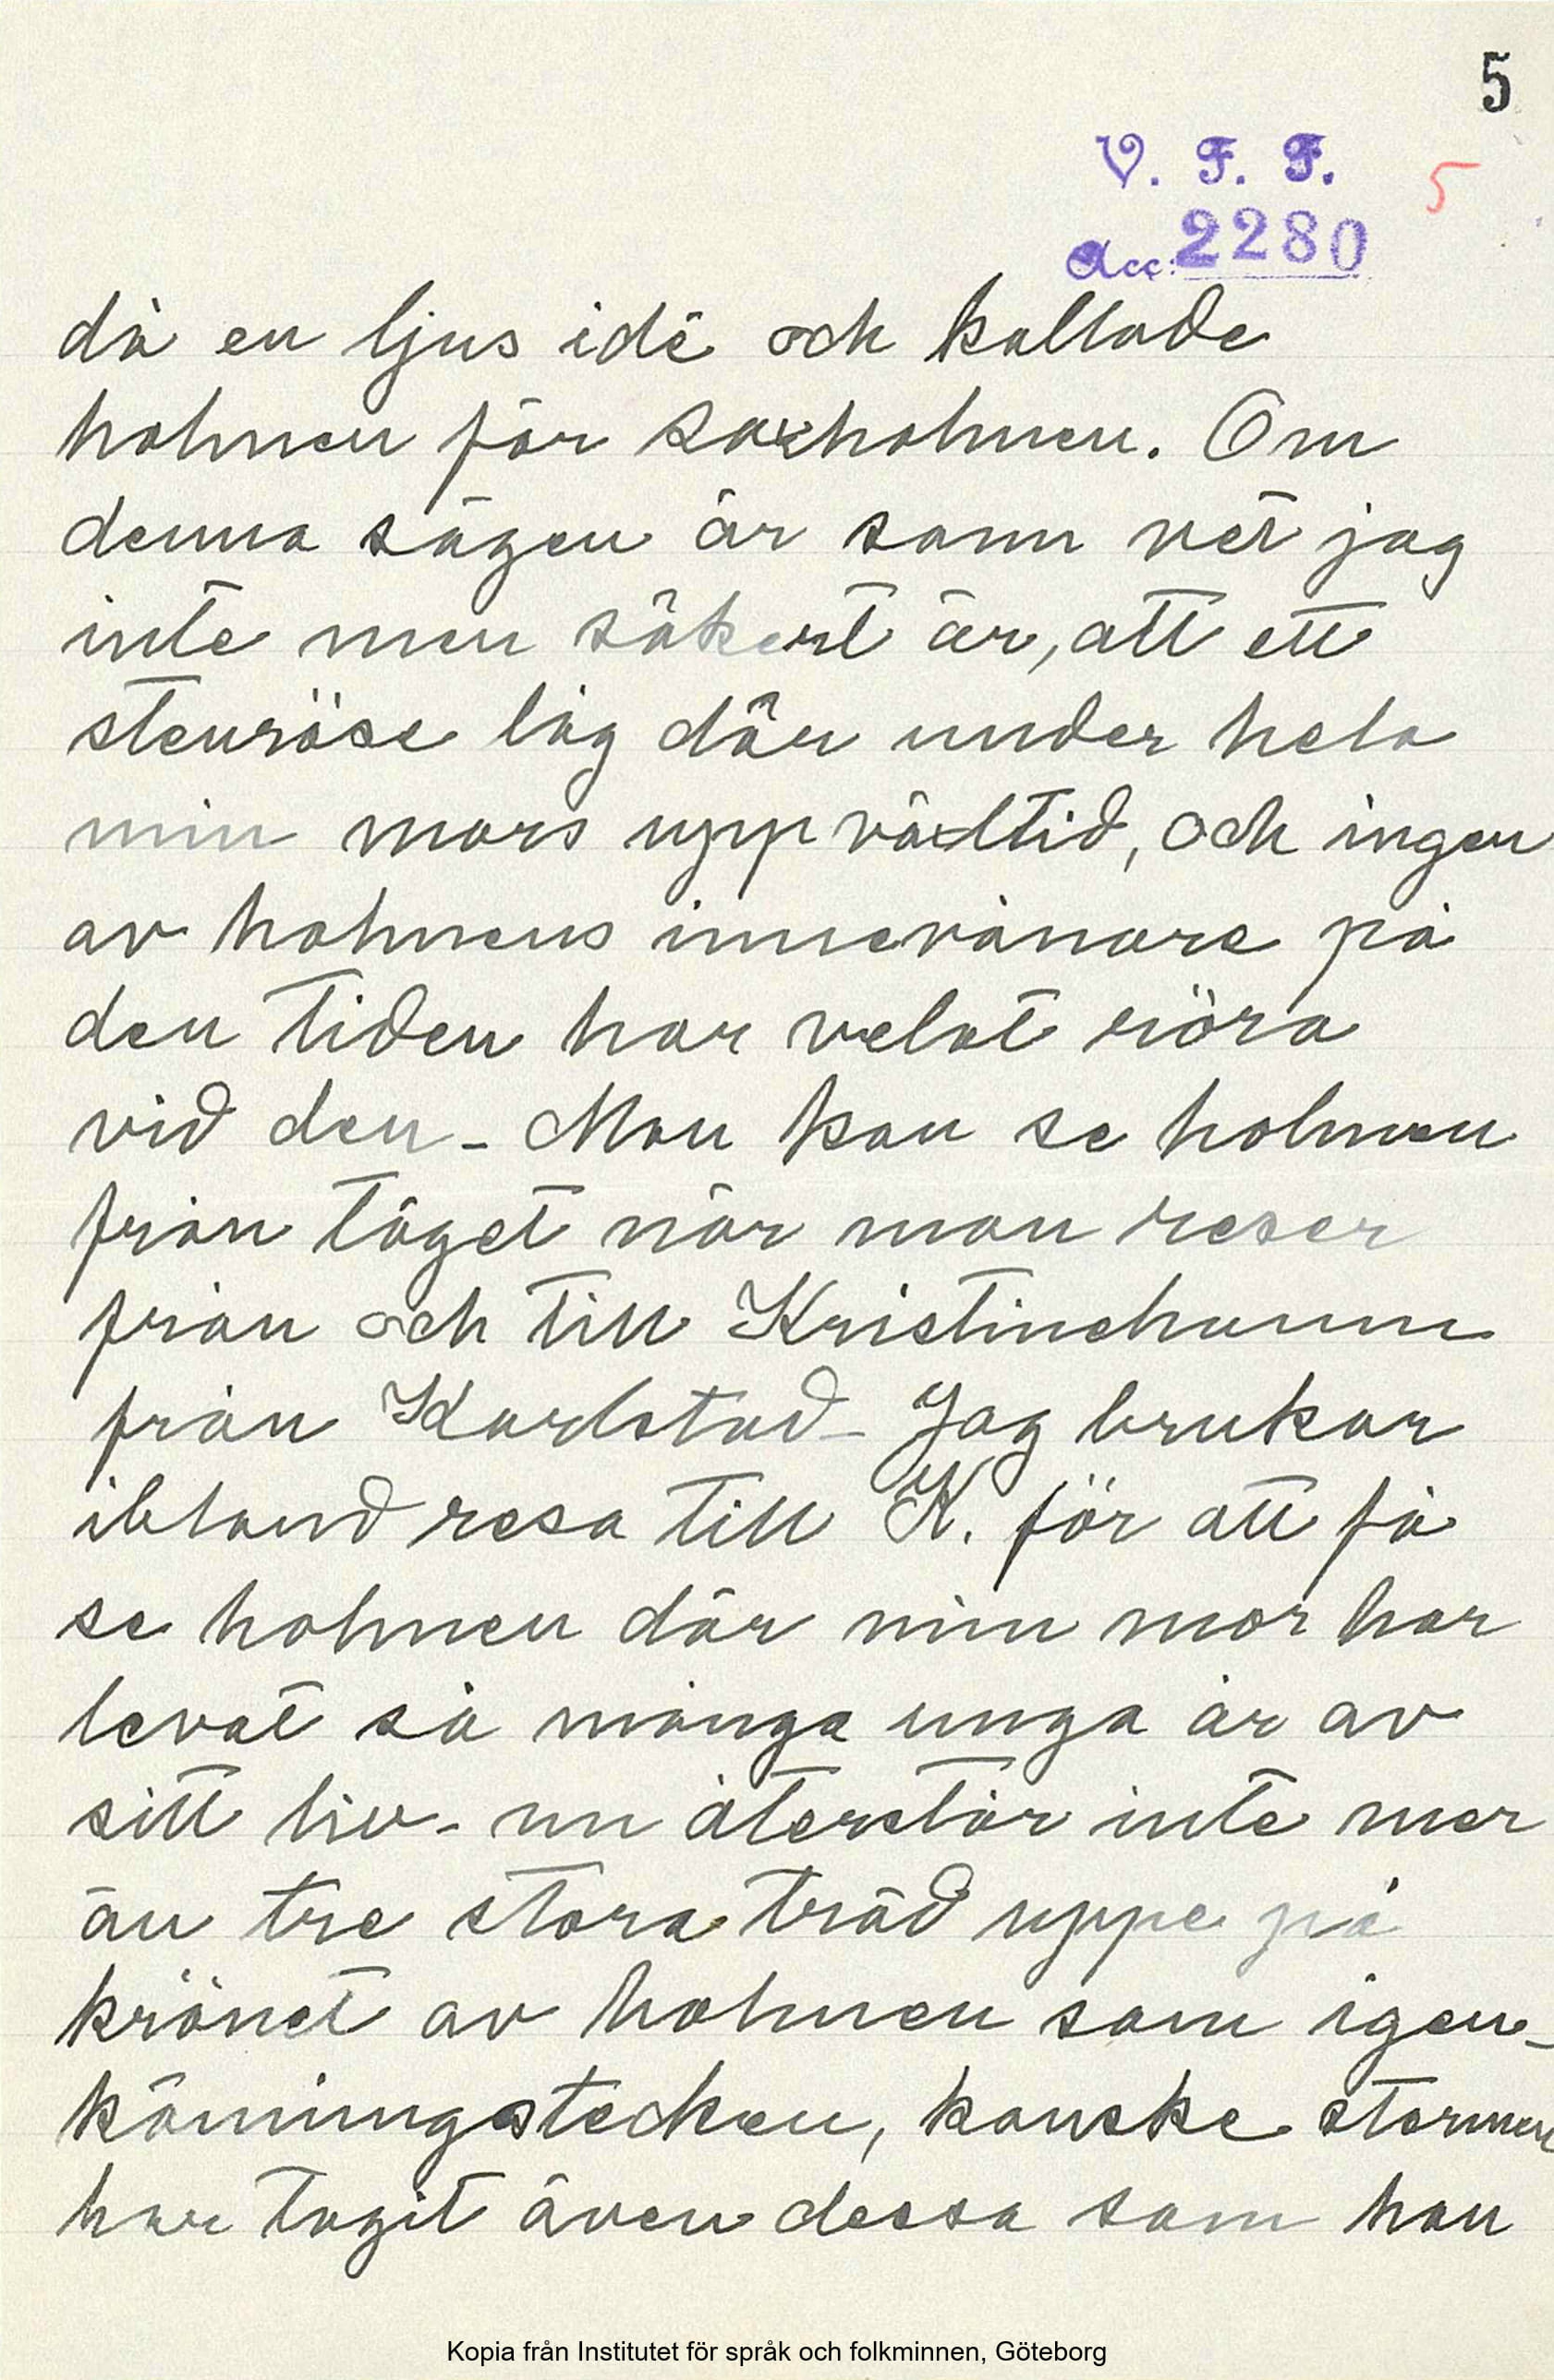 5
V. F. F. 5
Acc: 2280
då en ljus idé och kallade
holmen för saxholmen. Om
denna sägen är sann vet jag
inte men säkert är, att ett
stenröse låg där under hela
min mors uppväxttid, och ingen
av holmens innevånare på
den tiden har velat röra
vid den - Man kan se holmen
från tåget när man reser
från och till Kristinehamn
från Karlstad - Jag brukar
ibland resa till K. för att få
se holmen där min mor har
levat så många unga år av
sitt liv - nu återstår inte mer
än tre stora träd uppe på
krönet av holmen som igen-
känningstecken, kanske stormen
har tagit även dessa som han
Kopia från Institutet för språk och folkminnen, Göteborg